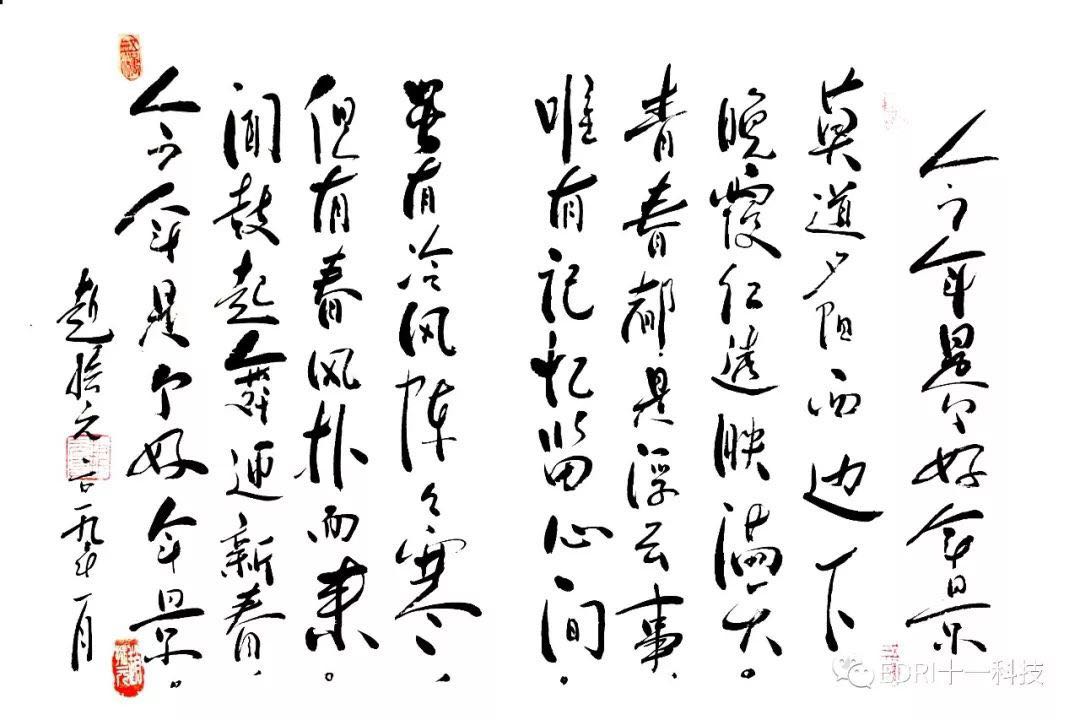 今年是个好年景
莫道夕阳西边下
晚霞红透映满天。
青春都是浮云事，
唯有记忆留心间，
虽有冷风阵々寒，
但有春风扑面来。
闻鼓起舞迎新春，
今年是个好年景。
赵振元 二〇一九年一月
EDRI十一科技